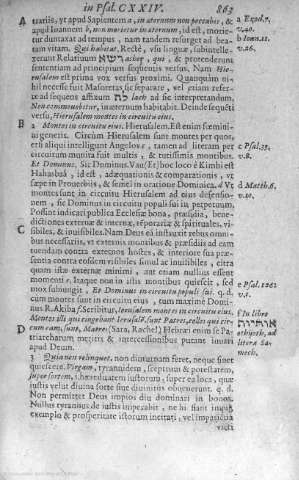 in Psal. CXXIV. 863
A
tuariis, vt apud Sapientem a, in æternum non peccabis, &
apud Ioannem b, non morietur in æternum, id est, morie-
tur duntaxat ad tempus, nam tandem resurget ad bea-
tam vitam. Qui habitat. Rectè, vsu linguæ, subintelle-
xerunt Relatiuum
sententiam ad principium sequentis versus. Nam Hie-
rusalem est prima vox versus proximi. Quanquam ni-
hil necesse fuit Masoretas sic separare, vel etiam refer-
re ad sequens affixum לה lah ad sic interpretandum,
Non commouebitur, in æternum habitabit. Deinde sequēti
versu, Hierusalem montes in circuitu eius.
B 2 Montes in circuitu eius. Hierusalem. Est enim Iemini-
ni generis. Circùm Hierusalem sunt montes per quos,
etsi aliqui intelligunt Angelos c, tamen ad literam per
circuitum munita fuit multis, & tutissimis montibus.
Et Dominus, sic Dominus. Vau (Et) hoc loco est Kimhi est
Hahasbaà, id est, adæquationis & comparationis, vt
sæpe in Prouerbiis, & semel in oratione Dominica. d Vt
montes sunt in circuitu Hierusalem ad eius defensio-
nem, sic Dominus in circuitu populi sui in perpetuum.
Possunt indicari publica Ecclesiæ bona, præsidia, bene-
dictiones externæ & internæ, corporariæ & spirituales, vi-
C sibiles, & inuisibiles. Nam Deus ea instaurat rebus omni-
bus necessariis, vt externis montibus & præsidiis ad eam
tuendam contra externos hostes, & interiore sua præ-
sentia contra eosdem visibiles simul ac inuisibiles, citra
quam istæ externæ minimi, aut etiam nullius essent
momenti e. Itaque non in istis montibus quiescit, sed
mox subiungit, Et Dominus in circuitu populi sui. q. d.
cum montes sunt in circuitu eius, tum maximè Domi-
nus R. Akiba f. Scribitur, Ierusalem montes in circuitu eius.
Montes illi qui cingebant Ierusalē, sunt Patres, colles qui cir-
cum eam, sunt, Matres (Sara, Rachel) Hebræi enim se Pa-
triarcharum meritis & intercessionibus putant iuuari
apud Deum.
D 3 Quia non relinquet, non diuturnam foret, neque sinet
quiescere. Virgam, tyrannidem, sceptrum & potestatem,
super sortem, i. hæreditatem iustorum, super ea loca, quæ
iustis velut diuina sorte suæ diuinitùs obtigerunt. q. d.
Non permittet Deus impios diu dominari in bonos.
Nullius tyrannus de iustis imperabit, ne hi sanè iniqui
exemplo & prosperitate istorum incitati, vel impatiētia
victi
a Exod.
b Ioann. 11.
v. 26.
c Psal. 33.
v. 8.
d Matth. 6.
v. 10.
e Psal. 126.
v. 1.
f In libro
אותיות